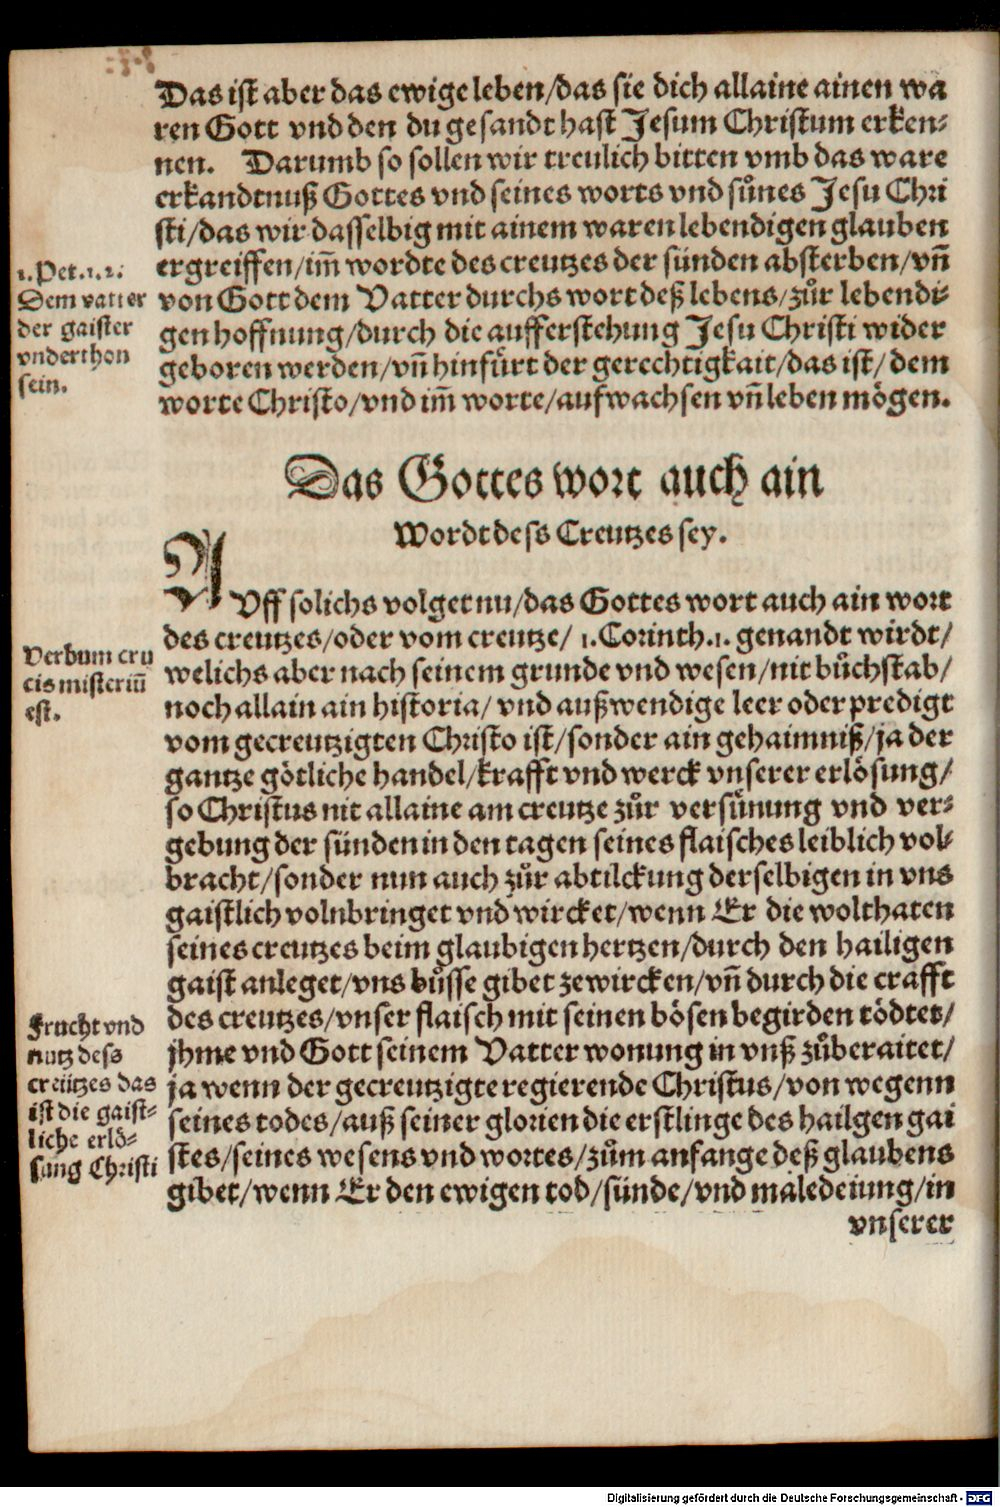 Das ist aber das ewige leben/das sie dich allaine ainen wa
ren Gott vnd den du gesandt hast Jesum Christum erken⸗
nen. Darumb so sollen wir treulich bitten vmb das ware
erkandtnuß Gottes vnd seines worts vnd suͤnes Jesu Chri
sti/das wir dasselbig mit ainem waren lebendigen glauben
ergreiffen/im̃ wordte des creutzes der sünden absterben/vñ
von Gott dem Vatter durchs wort deß lebens/zuͤr lebendi⸗
gen hoffnung/durch die aufferstehung Jesu Christi wider
geboren werden/vñ hinfürt der gerechtigkait/das ist/ dem
worte Christo/vnd im̃ worte/aufwachsen vñ leben mögen.
1. Pet. 1. 2.
Dem vatter
der gaister
vnderthon
sein.
Das Gottes wort auch ain
Wordt dess Creutzes sey.
AVff solichs volget nu/das Gottes wort auch ain wort
des creutzes/oder vom creutze/ 1. Corinth. 1. genandt wirdt/
welichs aber nach seinem grunde vnd wesen/nit buͤchstab/
noch allain ain historia/ vnd außwendige leer oder predigt
vom gecreutzigten Christo ist/sonder ain gehaimniß/ja der
gantze götliche handel/krafft vnd werck vnserer erlösung/
so Christus nit allaine am creutze zuͤr versuͤnung vnd ver⸗
gebung der sünden in den tagen seines flaisches leiblich vol⸗
bracht/sonder nun auch zuͤr abtilckung derselbigen in vns
gaistlich volnbringet vnd wircket/wenn Er die wolthaten
seines creutzes beim glaubigen hertzen/durch den hailigen
gaist anleget/vns buͤsse gibet zewircken/vñ durch die crafft
des creutzes/vnser flaisch mit seinen bösen begirden tödtet/
jhme vnd Gott seinem Vatter wonung in vnß zuͤberaitet/
ja wenn der gecreutzigte regierende Christus/von wegenn
seines todes/auß seiner glorien die erstlinge des hailgen gai
stes/seines wesens vnd wortes/zuͤm anfange deß glaubens
gibet/wenn Er den ewigen tod/sünde/vnd maledeiung/in
vnserer
Verbum cru
cis misteriũ
est.
Frucht vnd
nutz dess
creützes das
ist die gaist⸗
liche erlö⸗
sung Christi
Digitalisierung gefördert durch die Deutsche Forschungsgemeinschaft - DFG